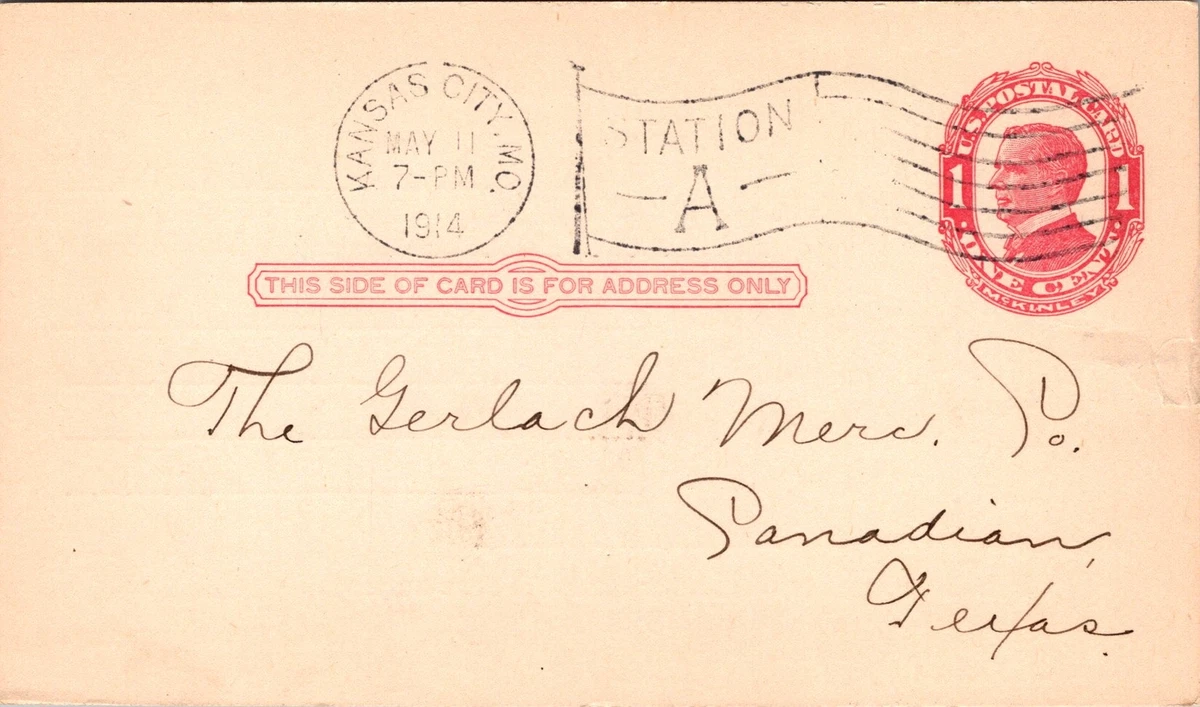 KANSAS CITY, MO.
MAY 11
7-PM
1914
STATION
A
U.S. POSTAL CARD
1 1
ONE CENT
McKINLEY
THIS SIDE OF CARD IS FOR ADDRESS ONLY
The Gerlach Merc. Co.
Canadian,
Texas.